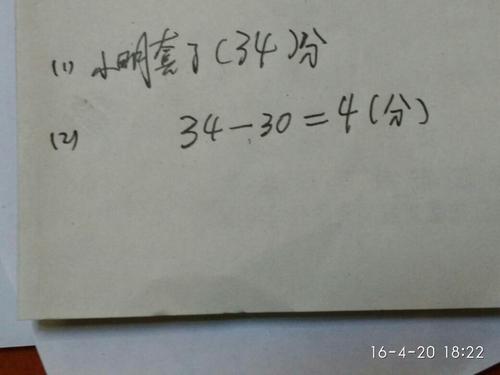 (1) 小明套了(34)分
(2) 34-30=4(分)
16-4-20 18:22